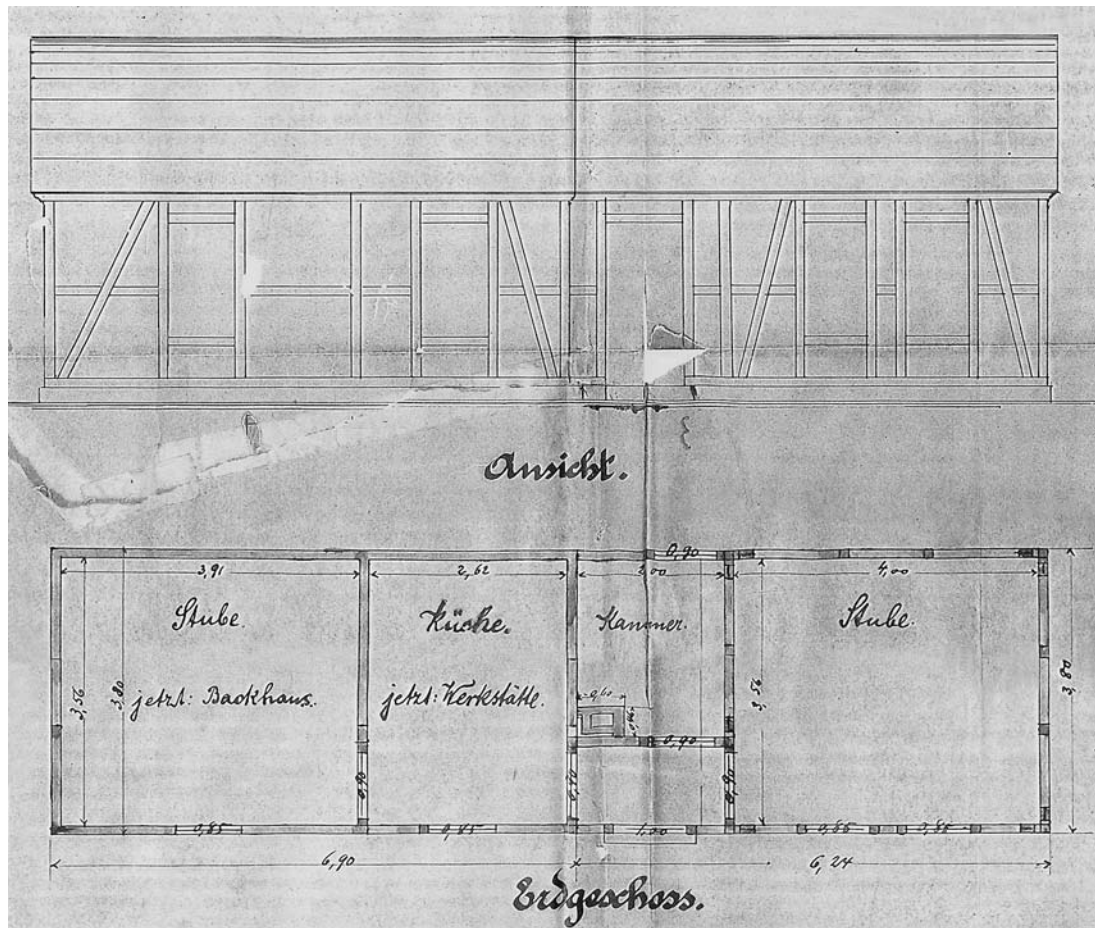 Ansicht.
0,90
3,91
2,62
2,00
4,00
Stube.
Küche.
Kammer.
Stube.
jetzt: Backhaus.
jetzt: Werkstätte.
3,56
3,80
3,56
3,80
0,60
0,90
0,90
0,90
0,90
0,85
0,85
1,00
0,85
0,85
6,90
6,24
Erdgeschoss.